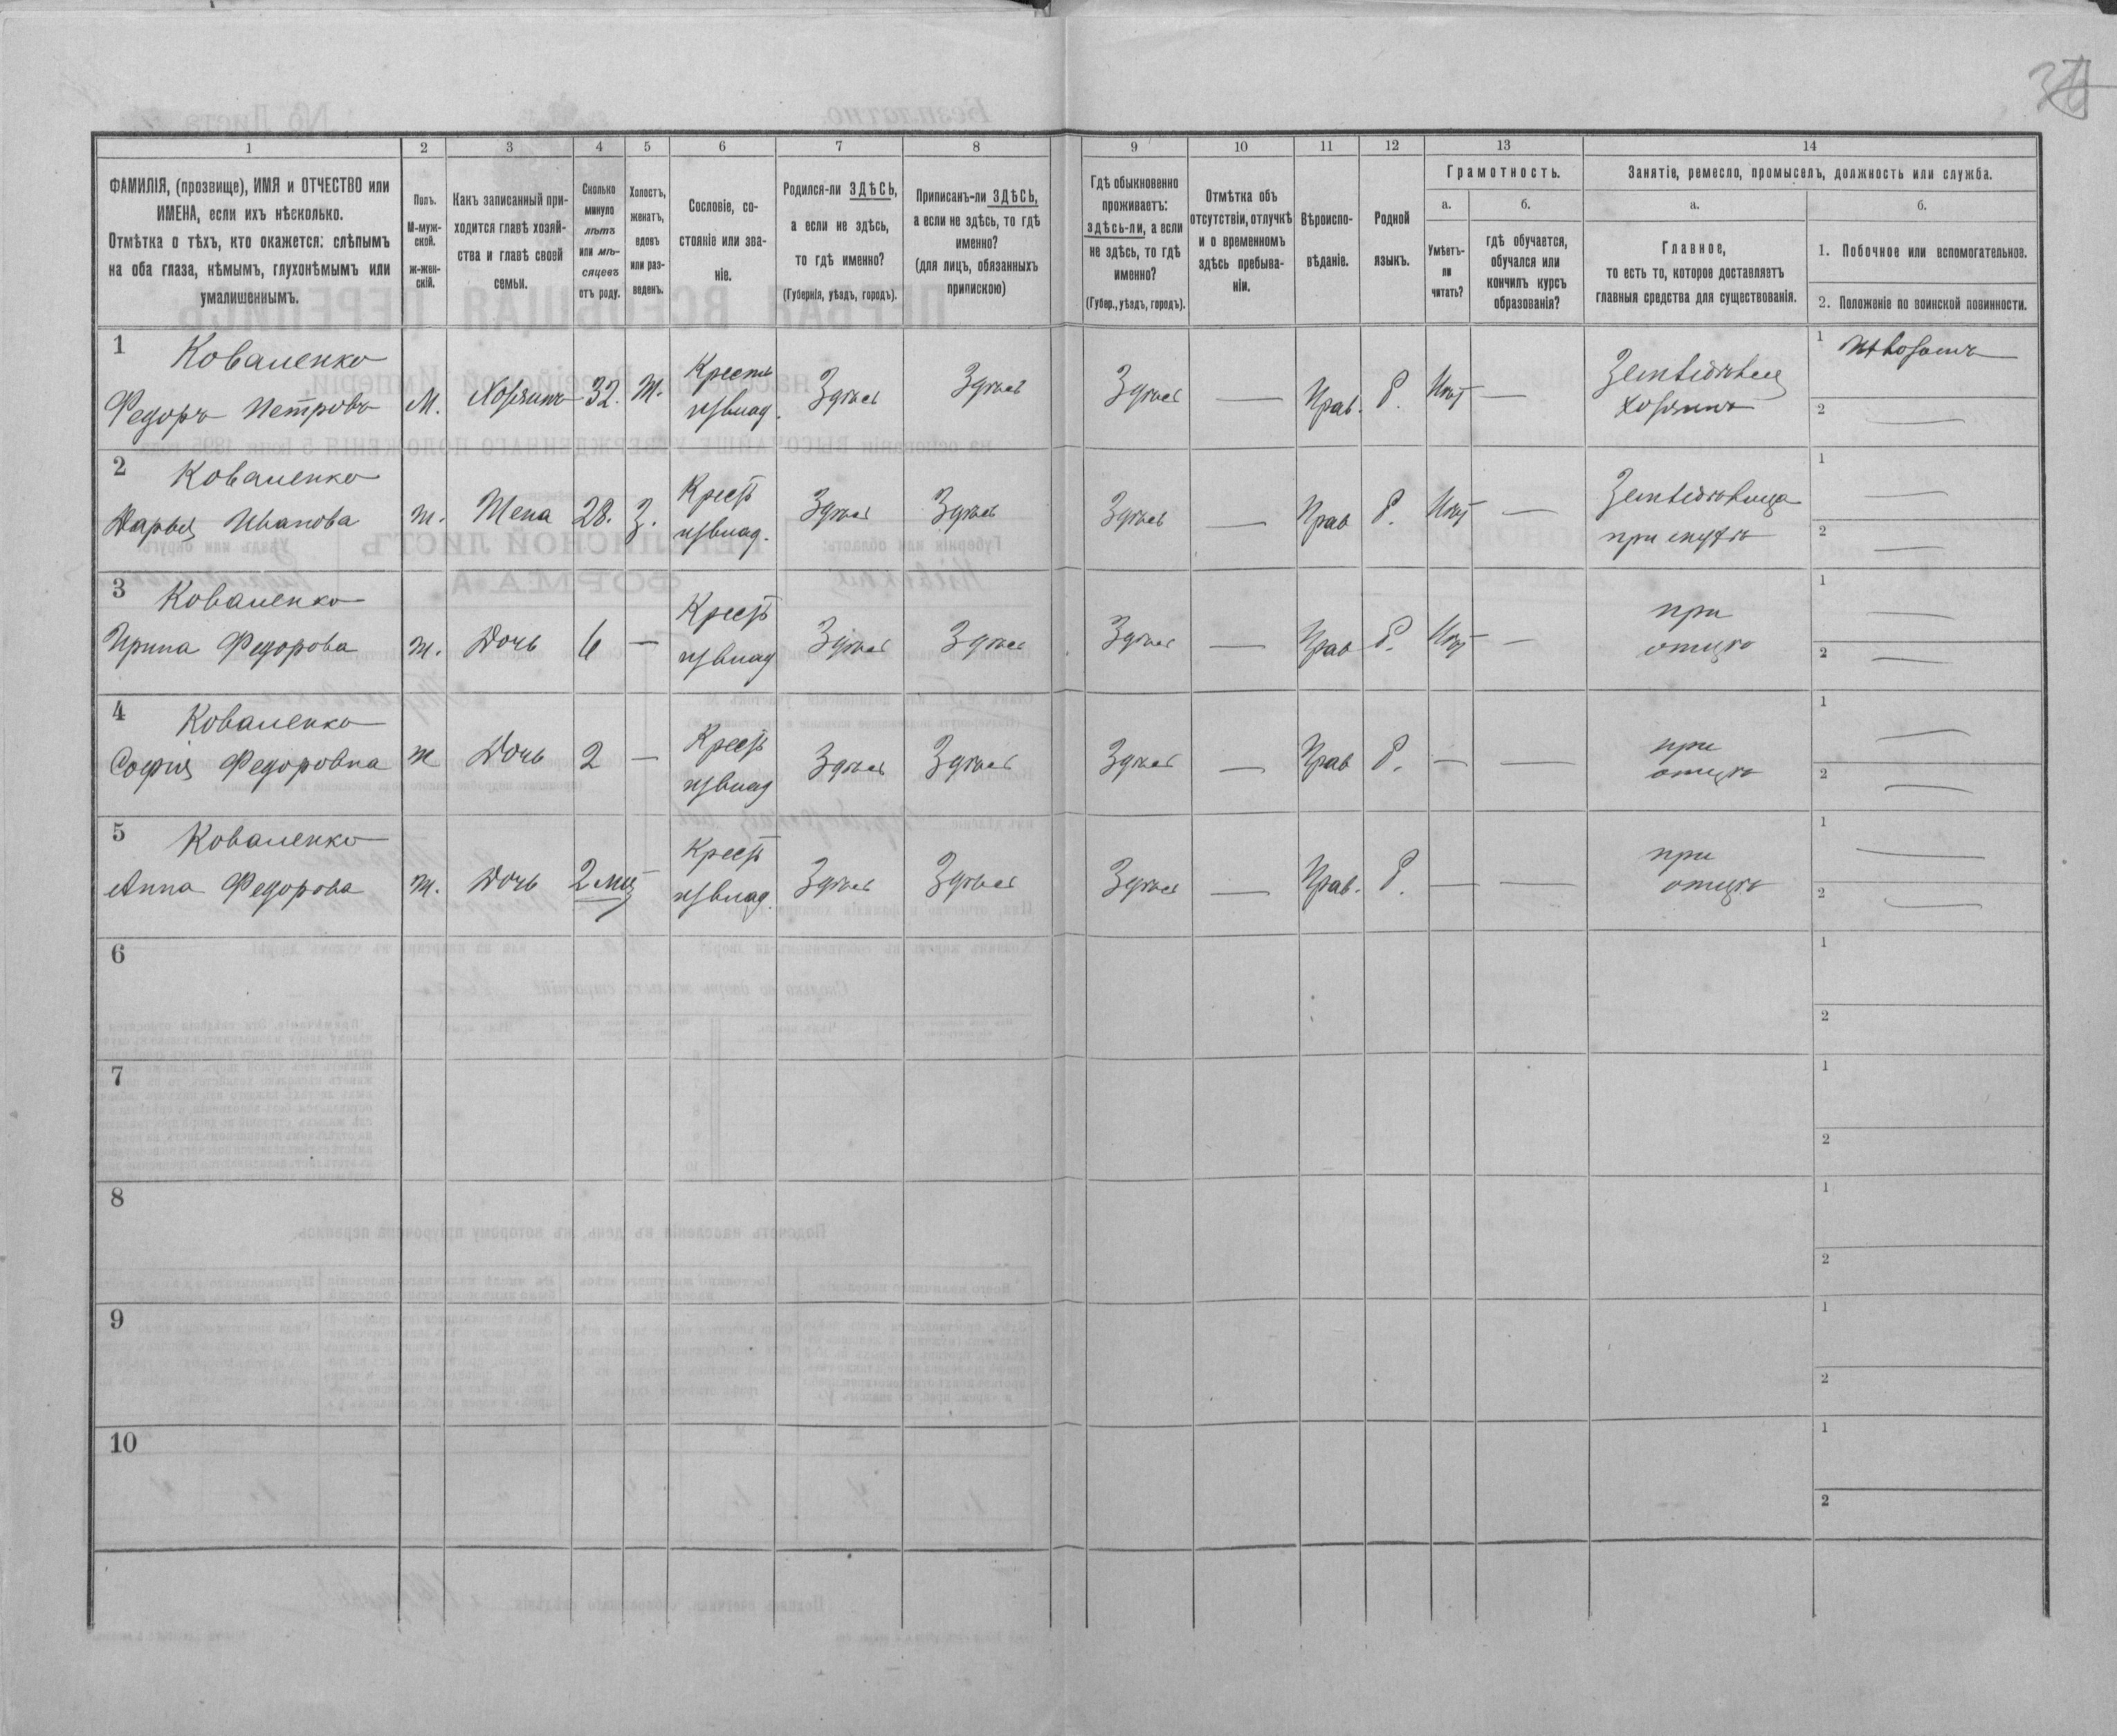 1 2 3 4 5 6 7 8 9 10 11 12 13 14
ФАМИЛІЯ, (прозвище), ИМЯ и ОТЧЕСТВО или
ИМЕНА, если ихъ нѣсколько.
Отмѣтка о тѣхъ, кто окажется: слѣпымъ
на оба глаза, нѣмымъ, глухонѣмымъ или
умалишеннымъ.
Полъ.
М-муж-
ской.
ж-жен-
скій.
Какъ записанный при-
ходится главѣ хозяй-
ства и главѣ своей
семьи.
Сколько
минуло
лѣтъ
или мѣ-
сяцевъ
отъ роду.
Холостъ,
женатъ,
вдовъ
или раз-
веденъ.
Сословіе, со-
стояніе или зва-
ніе.
Родился-ли ЗДѢСЬ,
а если не здѣсь,
то гдѣ именно?
(Губернія, уѣздъ, городъ).
Приписанъ-ли ЗДѢСЬ,
а если не здѣсь, то гдѣ
именно?
(для лицъ, обязанныхъ
припискою)
Гдѣ обыкновенно
проживаетъ:
здѣсь-ли, а если
не здѣсь, то гдѣ
именно?
(Губер., уѣздъ, городъ).
Отмѣтка объ
отсутствіи, отлучкѣ
и о временномъ
здѣсь пребыва-
ніи.
Вѣроиспо-
вѣданіе.
Родной
языкъ.
Грамотность.
а.
Умѣетъ-
ли
читать?
б.
гдѣ обучается,
обучался или
кончилъ курсъ
образованія?
Занятіе, ремесло, промыселъ, должность или служба.
а.
Главное,
то есть то, которое доставляетъ
главныя средства для существованія.
б.
1. Побочное или вспомогательное.
2. Положеніе по воинской повинности.
1 Коваленко
Федоръ Петровъ М. Хозяинъ 32. Ж. Крестъ извлад. Здѣсь Здѣсь Здѣсь — Прав. Р. Нѣт — Землѣдѣлец хозяинъ 1
2 —
2 Коваленко
Дарья Иванова ж. Жена 28. З. Крест извлад. Здѣсь Здѣсь Здѣсь — Прав Р. Нѣт — Землѣдѣлица при мужѣ 1 —
2 —
3 Коваленко
Ирина Федорова ж. Дочь 6 — Крест извлад Здѣсь Здѣсь Здѣсь — Прав Р. Нѣт — при отцѣ 1 —
2 —
4 Коваленко
София Федоровна ж Дочь 2 — Крест извлад Здѣсь Здѣсь Здѣсь — Прав Р. — — при отцѣ 1 —
2 —
5 Коваленко
Анна Федорова ж. Дочь 2 мц — Крест извлад. Здѣсь Здѣсь Здѣсь — Прав. Р. — — при отцѣ 1 —
2 —
6 1
2
7 1
2
8 1
2
9 1
2
10 1
2